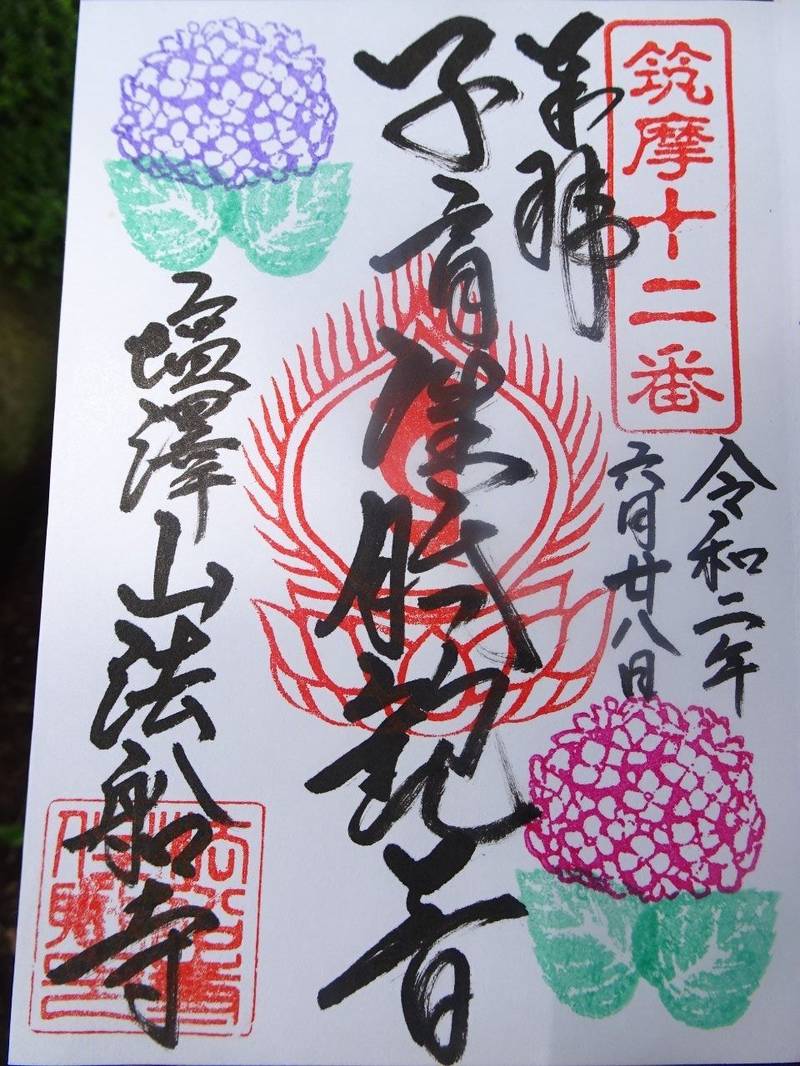 筑摩十二番
奉拝
令和二年
六月廿八日
子育準胝観音
塩澤山法船寺